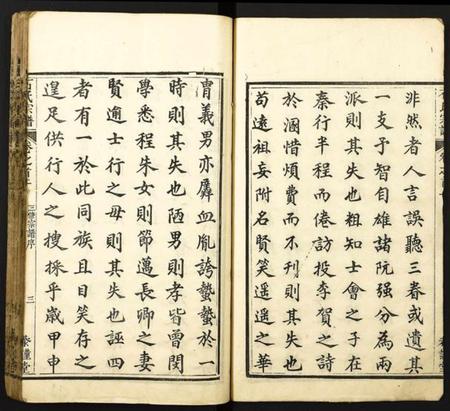 非然者人言誤聽三眷或遺其
一支予智自雄諸阮强分為兩
派則其失也粗知士會之子在
秦行半程而倦訪投李賀之詩
於溷惜煩費而不刊則其失也
苟遠祖妄附名賢笑遥遥之華
冑義男亦廁血胤誇蟄蟄於一
時則其失也陋男則孝皆曾閔
學悉程朱女則節邁長卿之妻
賢逾士行之母則其失也誣四
者有一於此同族且目笑存之
遑足供行人之搜採乎歲甲申
氏宗譜
卷之首
三修宗譜序
三